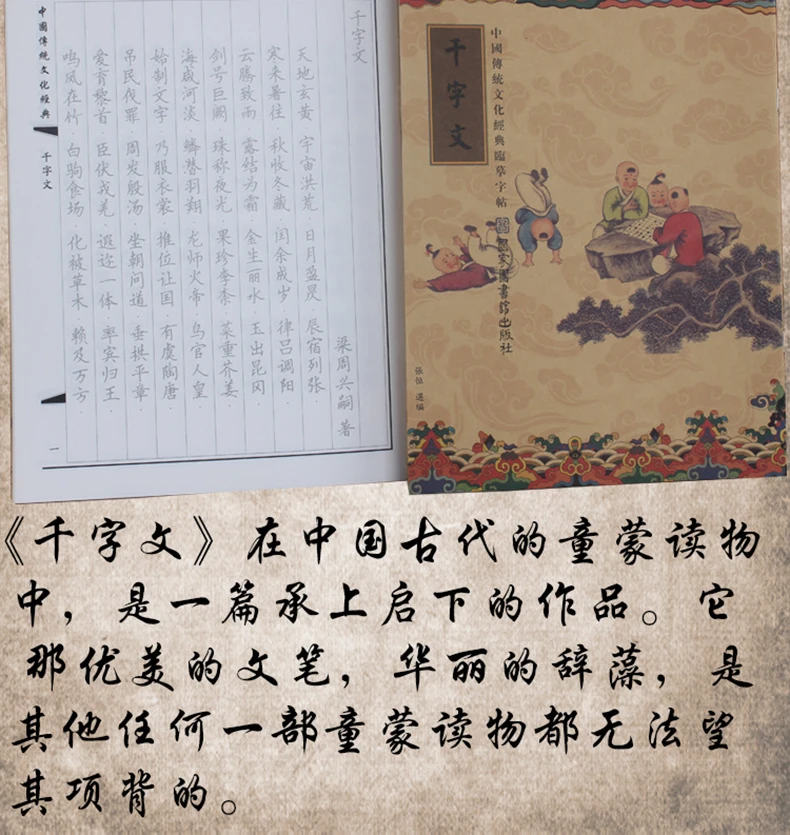 千字文
梁周兴嗣著
天地玄黄·宇宙洪荒·日月盈昃·辰宿列张·
寒来暑往·秋收冬藏·闰余成岁·律吕调阳·
云腾致雨·露结为霜·金生丽水·玉出昆冈·
剑号巨阙·珠称夜光·果珍李柰·菜重芥姜·
海咸河淡·鳞潜羽翔·龙师火帝·鸟官人皇·
始制文字·乃服衣裳·推位让国·有虞陶唐·
吊民伐罪·周发殷汤·坐朝问道·垂拱平章·
爱育黎首·臣伏戎羌·遐迩一体·率宾归王·
鸣凤在竹·白驹食场·化被草木·赖及万方·
中國傳統文化經典
千字文
一
中國傳統文化經典臨摹字帖
千字文
國家圖書館出版社
張恒 選編
《千字文》在中国古代的童蒙读物
中，是一篇承上启下的作品。它
那优美的文笔，华丽的辞藻，是
其他任何一部童蒙读物都无法望
其项背的。